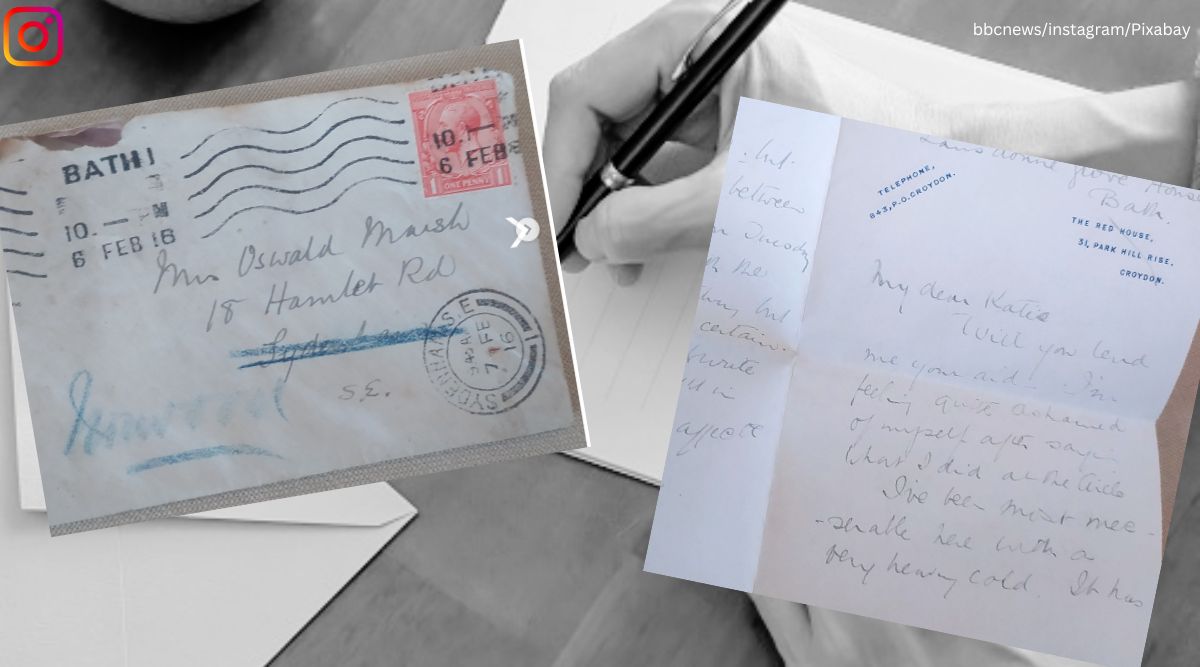 bbcnews/instagram/Pixabay
BATH
10.—
6 FEB 16
10.—
6 FEB
ONE PENNY
Mrs Oswald Marsh
18 Hamlet Rd
Sydenham
S.E.
Norwood
SYDENHAM. S.E.
7 FE
16
between
Tuesday
the
but
certain.
write
in
Lansdowne Grove House
Bath.
TELEPHONE,
843, P.O. CROYDON.
THE RED HOUSE,
31, PARK HILL RISE,
CROYDON.
My dear Katie
Will you lend
me your aid – I'm
feeling quite ashamed
of myself after saying
what I did at the Circle
I've been most mee-
-serable here with a
very heavy cold. It has